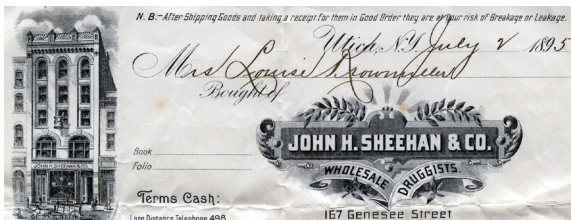 N. B.-After Shipping Goods and taking a receipt for them in Good Order they are at your risk of Breakage or Leakage.
Utica, N.Y. July 2 1895
Mrs Louise
Bought of
JOHN H. SHEEHAN & CO.
WHOLESALE DRUGGISTS.
JOHN H. SHEEHAN & CO.
Book
Folio
Terms Cash:
Long Distance Telephone 498
167 Genesee Street